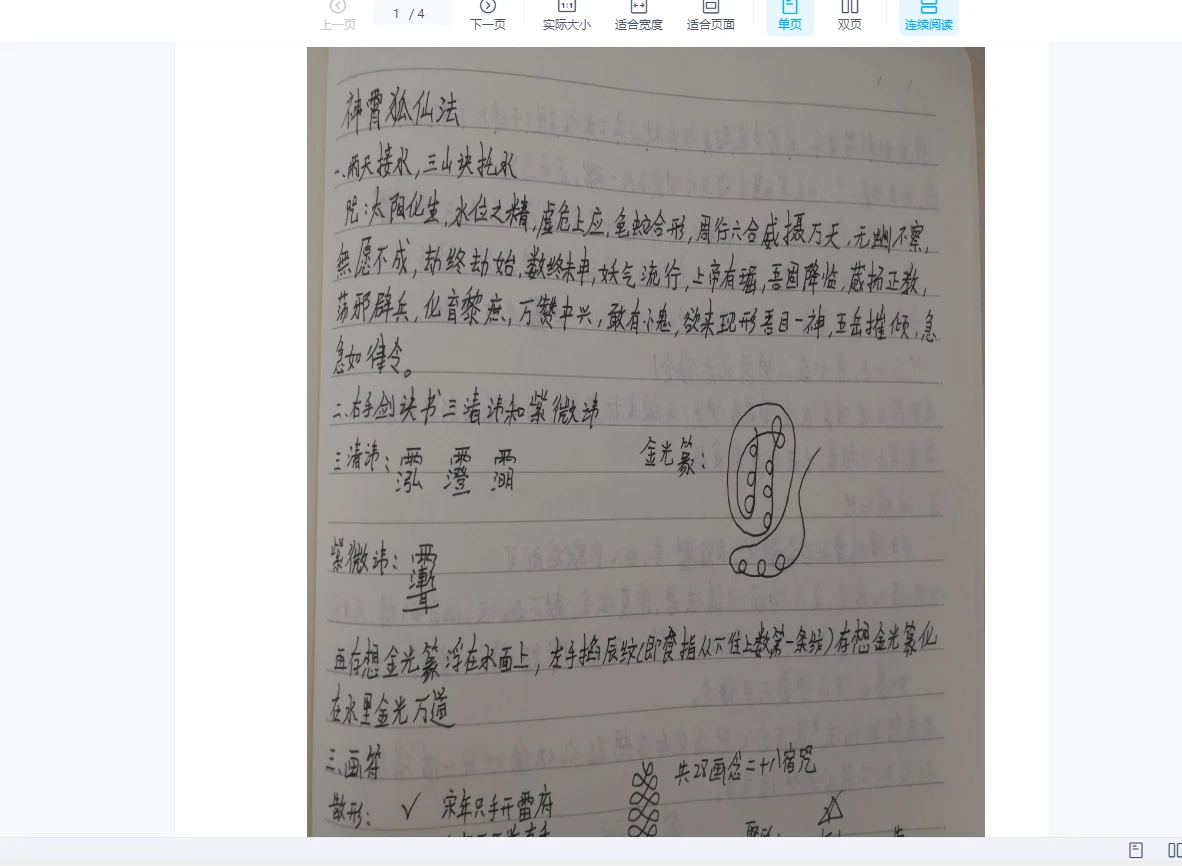 上一页
1 / 4
下一页
1:1
实际大小
适合宽度
适合页面
单页
双页
连续阅读
神霄狐仙法
一、雨天接水,三山诀托水
咒:太阳化生,水位之精,虚危上应,龟蛇合形,周行六合威摄万天,无幽不察,
無愿不成,劫终劫始,数终未申,妖气流行,上帝有,吾固降临,蒇扬正教,
荡邪辟兵,化育黎庶,万赞中兴,敢有小鬼,欲来现形吾目一神,五岳摧倾,急
急如律令。
二、右手剑诀书三清讳和紫微讳
三清讳:
金光篆:
紫微讳:
再存想金光篆浮在水面上,左手掐辰纹(即食指从下往上数第一条纹)存想金光篆化
在水里金光万道
三、画符
共28画念二十八宿咒
散形: ✓ 宋年只手开雷府